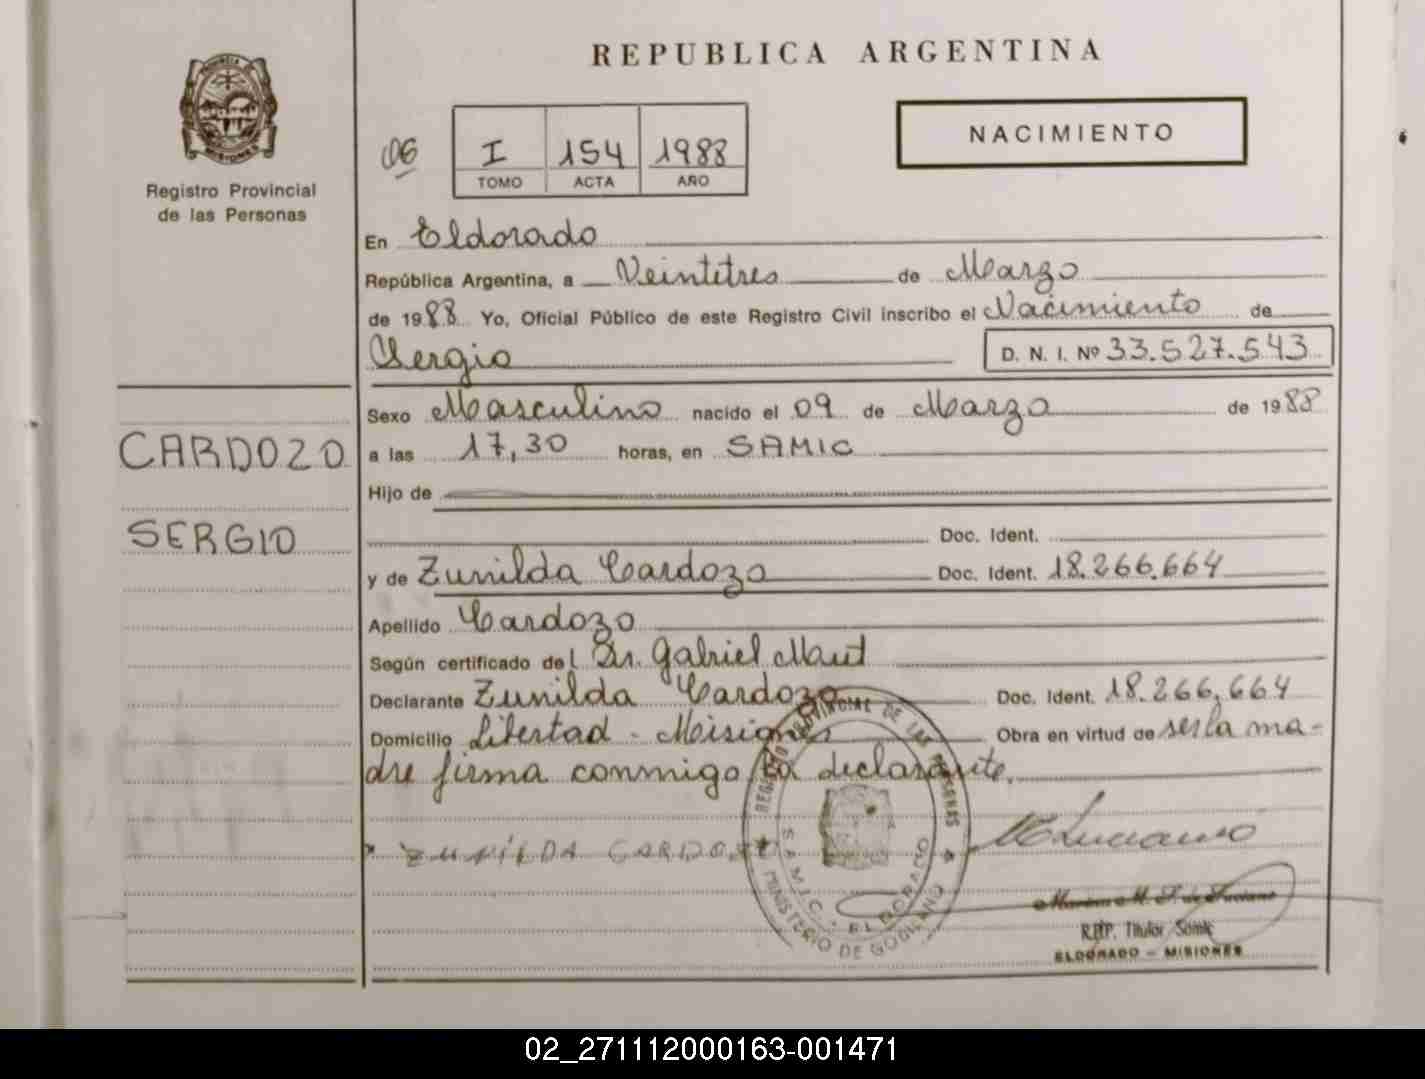 REPUBLICA ARGENTINA
PROVINCIA DE MISIONES
Registro Provincial
de las Personas
06
I 154 1988
TOMO ACTA AÑO
NACIMIENTO
En Eldorado
República Argentina, a Veintitres de Marzo
de 1988 Yo, Oficial Público de este Registro Civil inscribo el Nacimiento de
Sergio D. N. I. Nº 33.527.543
CARDOZO
SERGIO
Sexo Masculino nacido el 09 de Marzo de 1988
a las 17,30 horas, en SAMIC
Hijo de
Doc. Ident.
y de Zunilda Cardozo Doc. Ident. 18.266.664
Apellido Cardozo
Según certificado del Dr. Gabriel Maut
Declarante Zunilda Cardozo Doc. Ident. 18.266.664
Domicilio Libertad - Misiones Obra en virtud de ser la ma-
dre firma conmigo la declarante.
ZUNILDA CARDOZO
REGISTRO PROVINCIAL DE LAS PERSONAS
S.A.M.I.C. - ELDORADO
MINISTERIO DE GOBIERNO
M Luciano
R.P.P. Titular Samic
ELDORADO - MISIONES
02_271112000163-001471